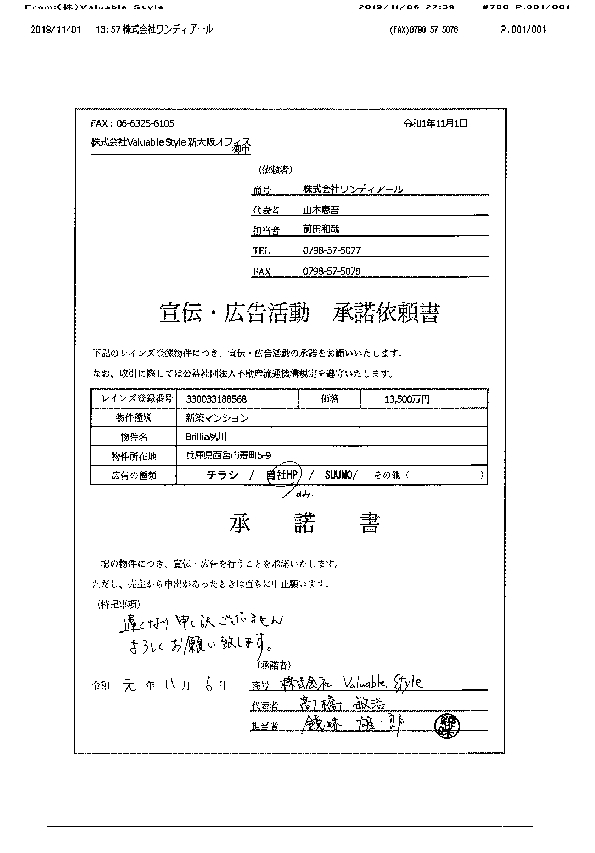 From:(株)Valuable Style 2019/11/06 22:39 #700 P.001/001
2019/11/01 13:57 株式会社ワンディアール (FAX)0798 57 5078 P.001/001
FAX：06-6325-6105 令和1年11月1日
株式会社Valuable Style 新大阪オフィス
御中
（依頼者）
商号 株式会社ワンディアール
代表者
担当者 前田和哉
TEL 0798-57-5077
FAX 0798-57-5078
宣伝・広告活動 承諾依頼書
下記のレインズ登録物件につき、宣伝・広告活動の承諾をお願いいたします。
なお、取引に際しては公益社団法人不動産流通機構規定を遵守いたします。
レインズ登録番号 330033188568 価格 13,500万円
物件種類 新築マンション
物件名 Brillia夙川
物件所在地 兵庫県西宮市 5-9
広告の種類 チラシ / 自社HP / SUUMO/ その他（ ）
のみ
承 諾 書
記の物件につき、宣伝・広告を行うことを承諾いたします。
ただし、売主から申出があったときは直ちに中止願います。
（特記事項）
遅くなり申し訳ございません
よろしくお願い致します。
（承諾者）
令和 元 年 11 月 6 日 商号 株式会社 Valuable Style
代表者 高橋 敏浩
担当者